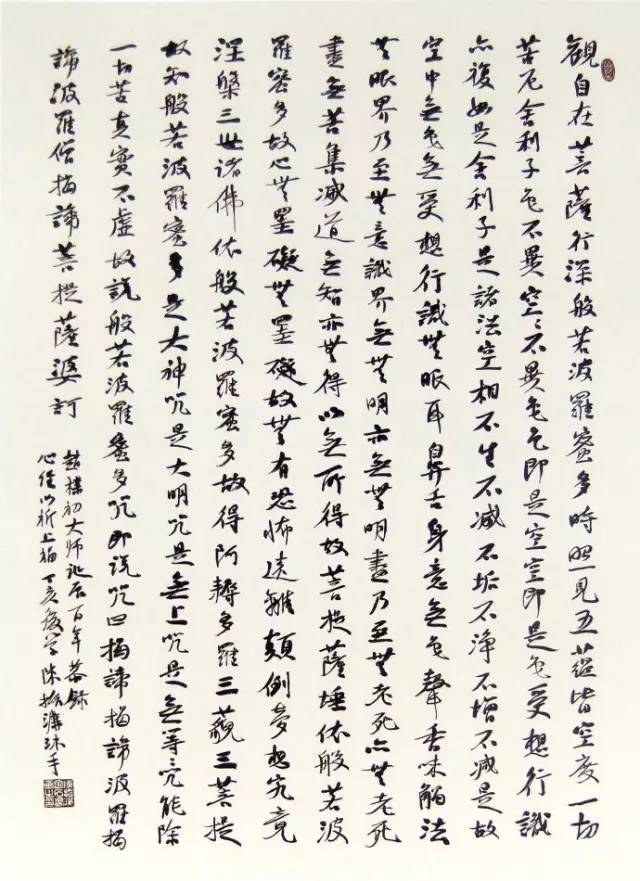 觀自在菩薩行深般若波羅蜜多時照見五蘊皆空度一切
苦厄舍利子色不異空〻不異色色即是空空即是色受想行識
亦復如是舍利子是諸法空相不生不減不垢不淨不增不減是故
空中無色無受想行識無眼耳鼻舌身意無色聲香味觸法
無眼界乃至無意識界無無明亦無無明盡乃至無老死亦無老死
盡無苦集減道無智亦無得以無所得故菩提薩埵依般若波
羅蜜多故心無罣礙無罣礙故無有恐怖遠離顛倒夢想究竟
涅槃三世諸佛依般若波羅蜜多故得阿耨多羅三藐三菩提
故知般若波羅蜜多是大神咒是大明咒是無上咒是無等咒能除
一切苦真實不虛故說般若波羅蜜多咒即說咒曰揭諦揭諦波羅揭
諦波羅僧揭諦菩提薩婆訶
趙樸初大師誕辰百年恭錄
心經以祈上福丁亥陳振濂沐手